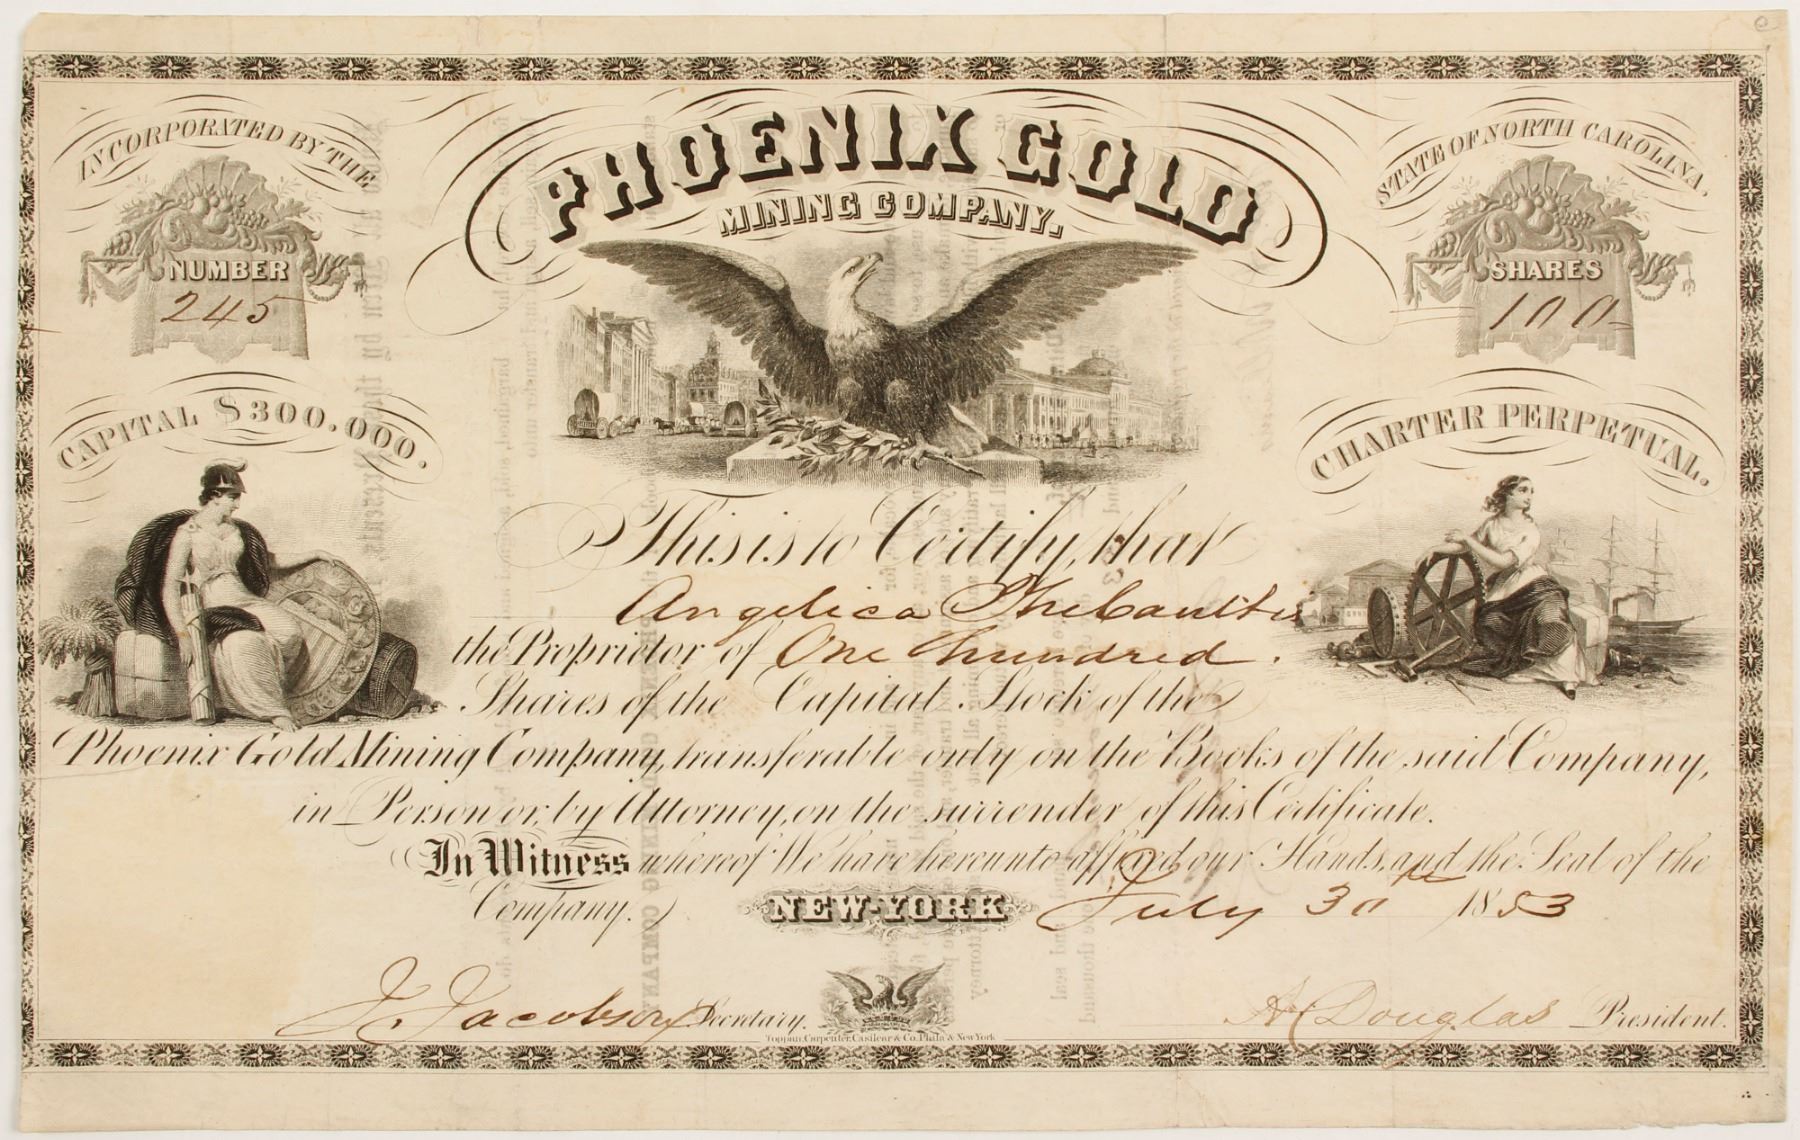 INCORPORATED BY THE
STATE OF NORTH CAROLINA.
PHOENIX GOLD
MINING COMPANY.
NUMBER
245
SHARES
100
CAPITAL $300.000.
CHARTER PERPETUAL.
This is to Certify, that
Angelica
the Proprietor of One hundred.
Shares of the Capital Stock of the
Phoenix Gold Mining Company, transferable only on the Books of the said Company,
in Person or, by Attorney, on the surrender of this Certificate.
In Witness whereof We have hereunto affixed our Hands, and the Seal of the
Company. NEW-YORK July 30th 1853
J. Jacobson Secretary.
A Douglas President.
Toppan, Carpenter, Casilear & Co. Phila & New York